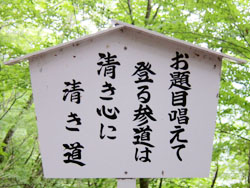 お題目唱えて
登る参道は
清き心に
清き道